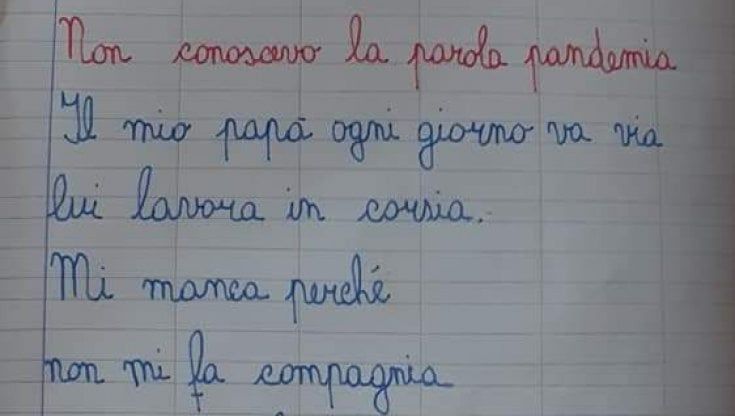 Non conoscevo la parola pandemia
Il mio papà ogni giorno va via
lui lavora in corsia.
Mi manca perché
non mi fa compagnia